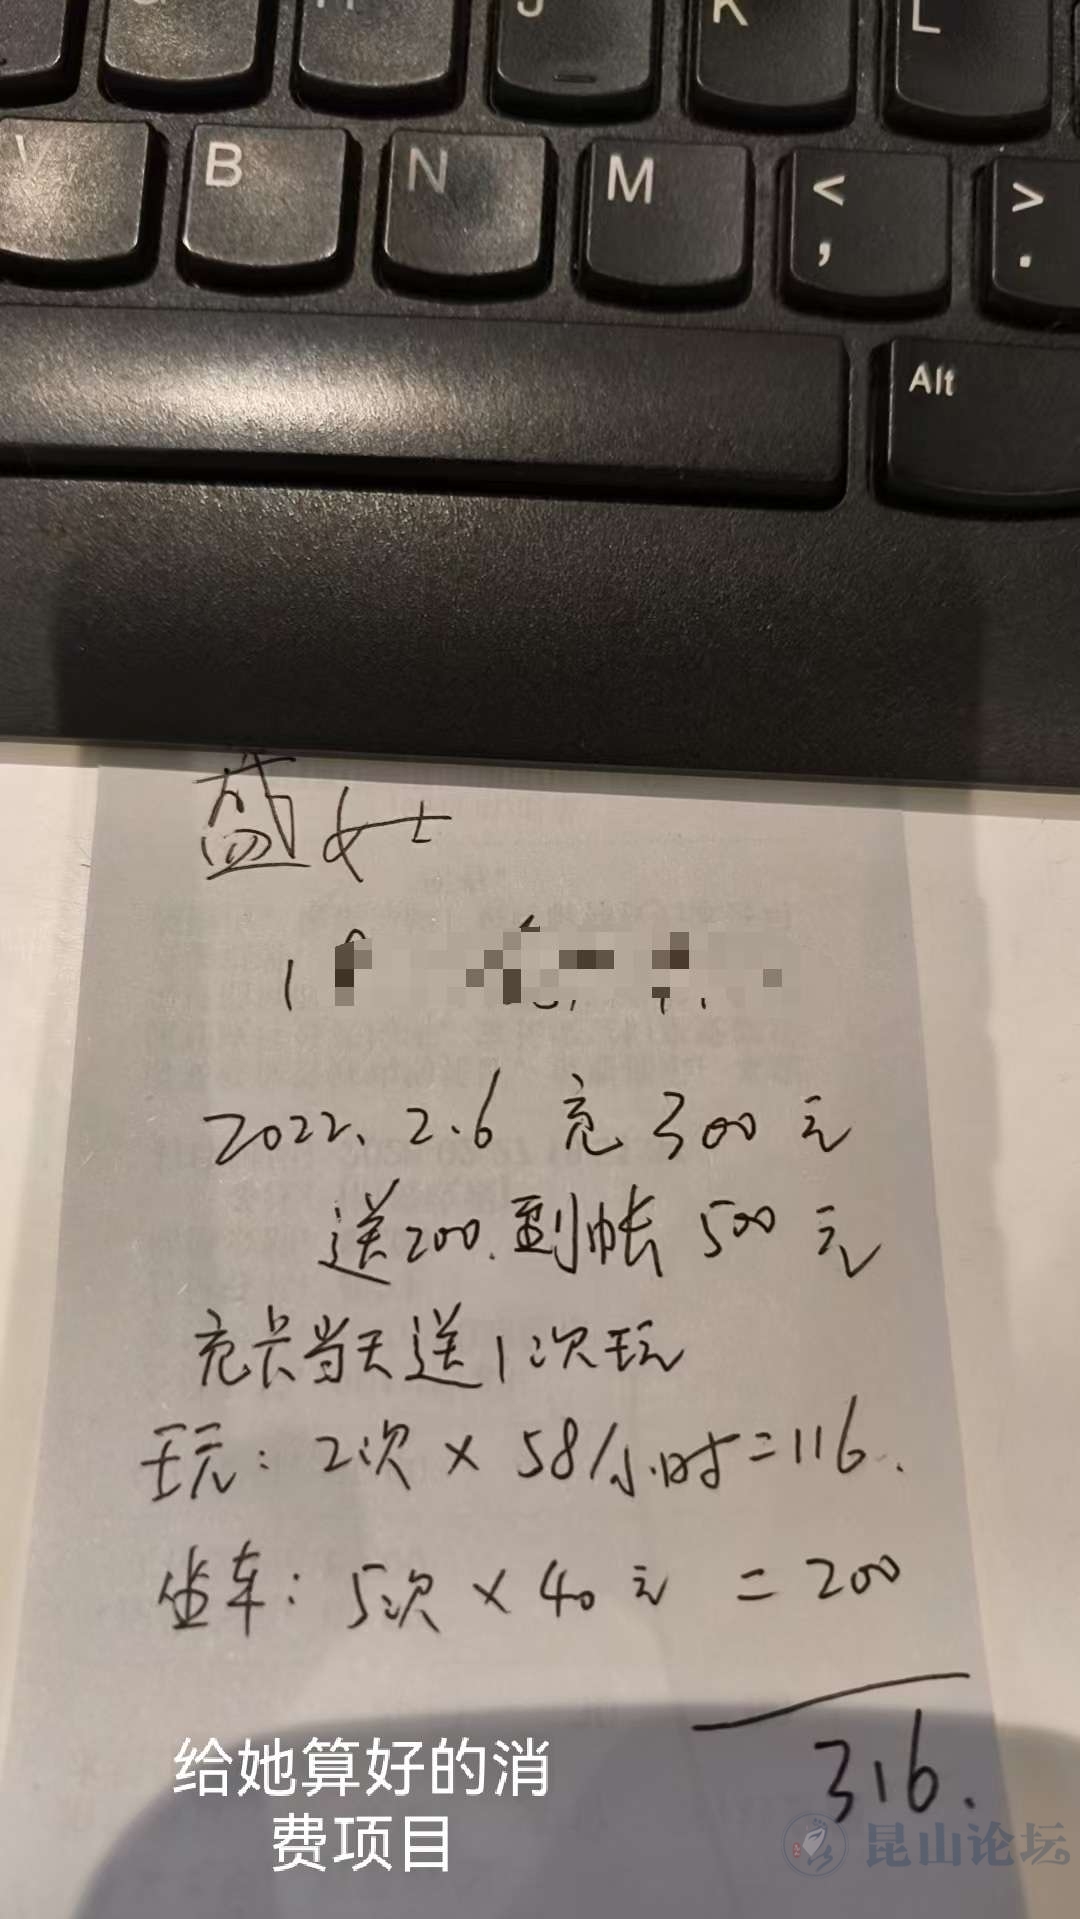 J K L
V B N M < , > .
Alt
盛女士
2022、2.6 充300元
送200.到帐500元
充卡当天送1次玩
玩：2次×58/小时=116.
坐车：5次×40元=200
316.
给她算好的消
费项目
昆山论坛